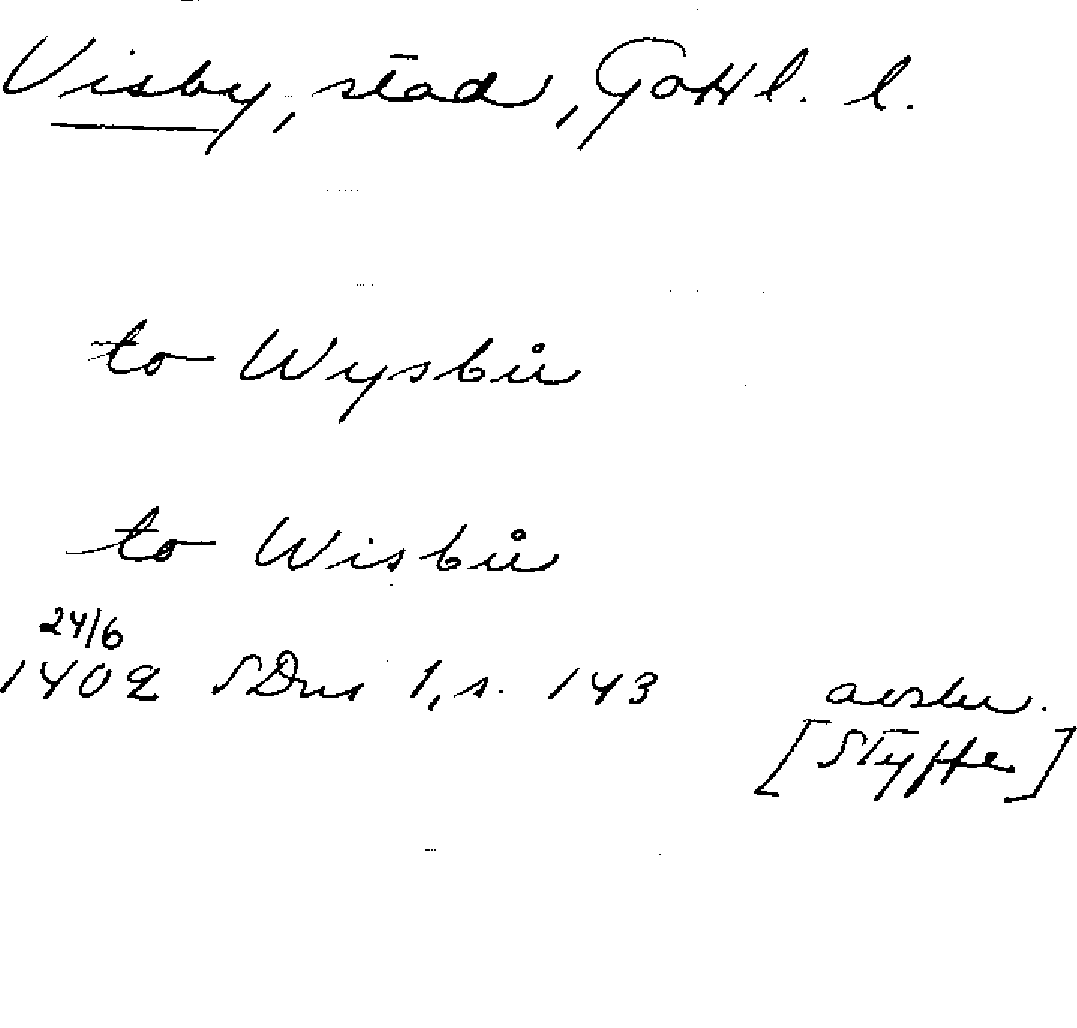 Visby, stad, Gottl. l.
to Wysbů
to Wisbů
24/6
1402 SDns 1, s. 143 avskr.
[Styffe]